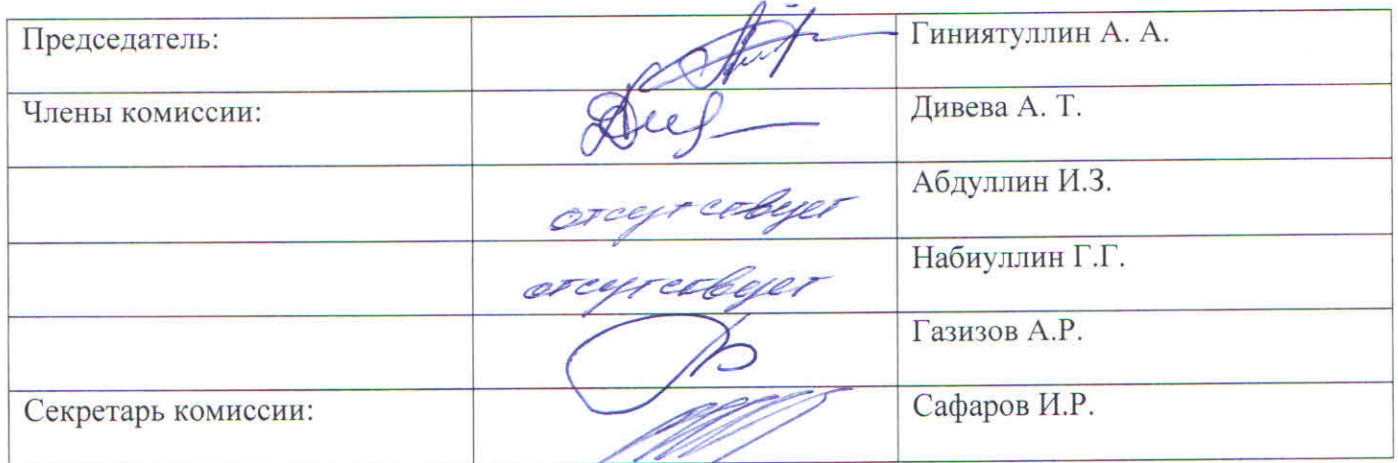 Председатель: Гиниятуллин А. А.
Члены комиссии: Дивева А. Т.
отсутствует Абдуллин И.З.
отсутствует Набиуллин Г.Г.
Газизов А.Р.
Секретарь комиссии: Сафаров И.Р.